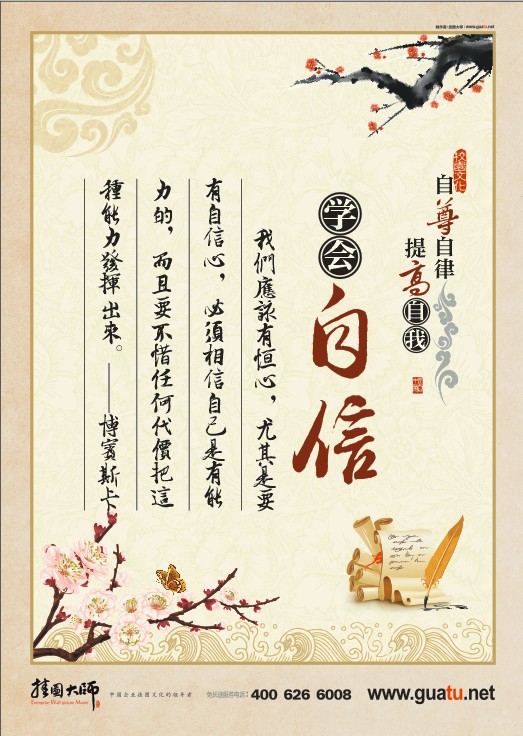 挂图大师 | www.guatu.net
校园文化
自尊自律
提高自我
学会
自信
我們應該有恒心，尤其是要
有自信心，必須相信自己是有能
力的，而且要不惜任何代價把這
種能力發揮出來。——博賓斯卡
挂图大师
中国企业挂图文化的领导者
免长途服务电话：400 626 6008
www.guatu.net